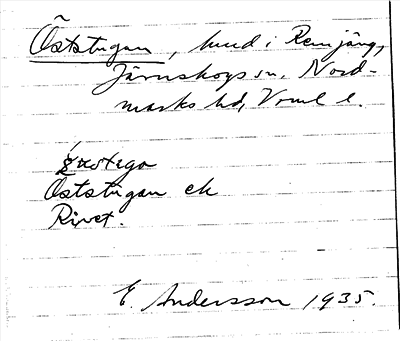 Öststugan, lund i Renjäng,
Järnskogs sn. Nord-
marks hd, Verml l.
Öststugan ek
Rivet.
E. Andersson 1935.